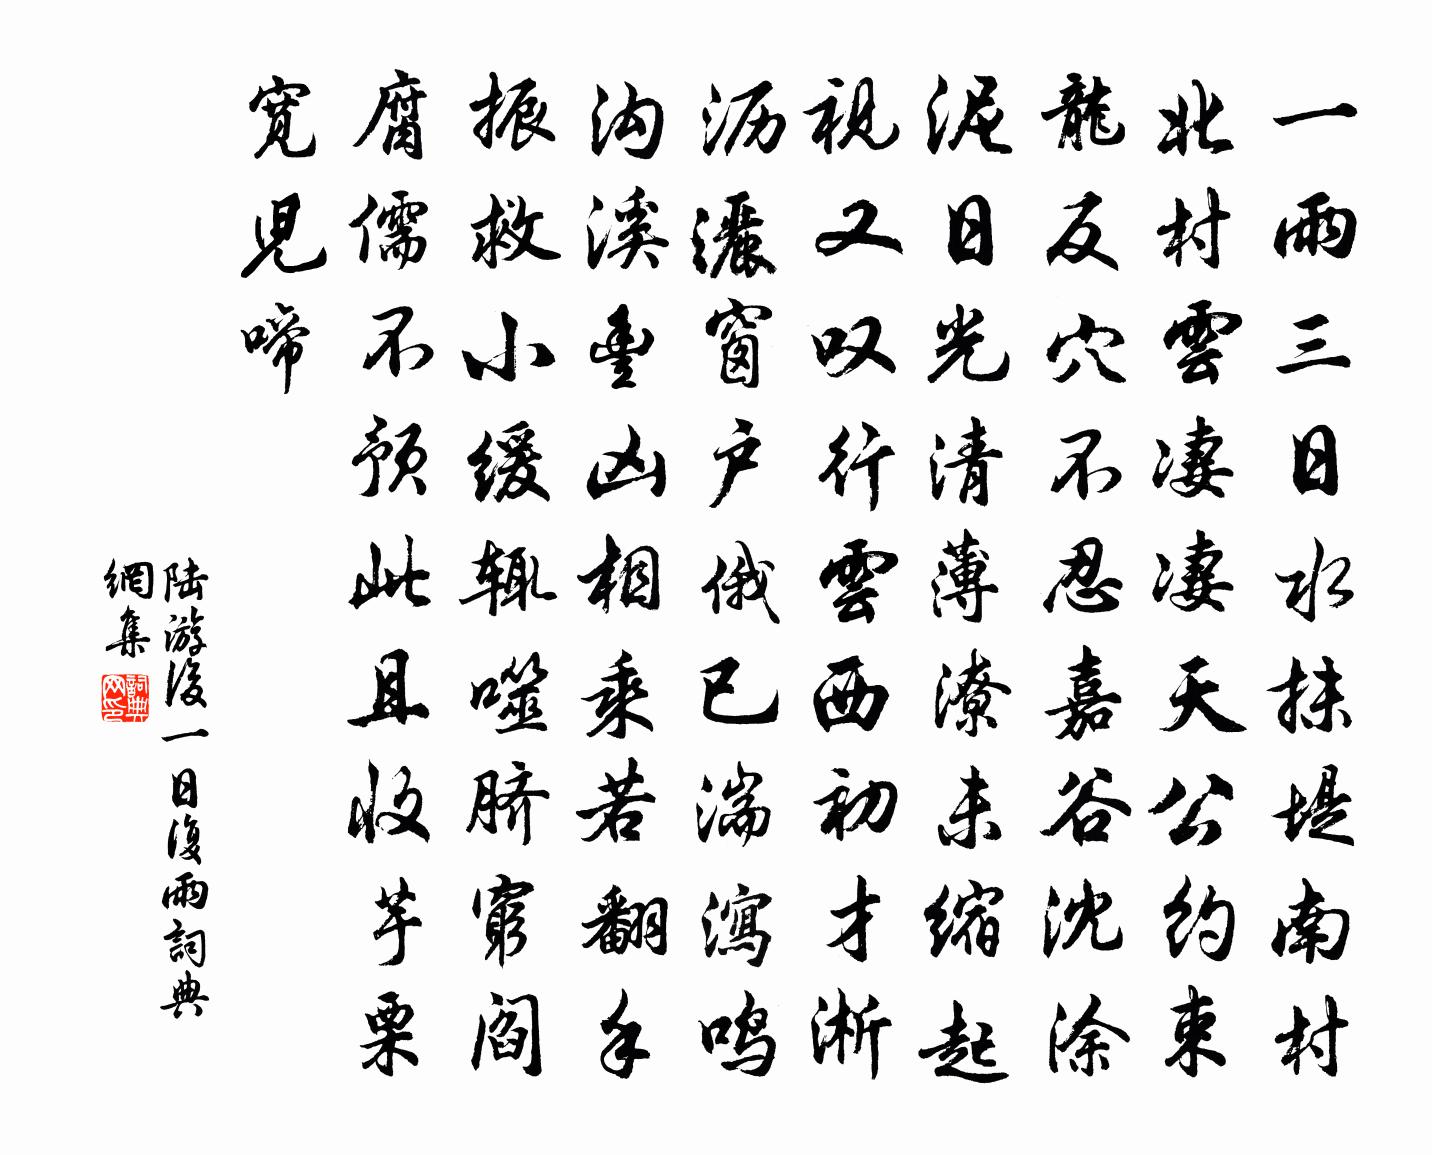 一雨三日水抹堤南村
北村雲凄凄天公約束
龍反穴不忍嘉谷沈涂
泥日光清薄潦未縮起
視又叹行雲西初才淅
沥灑窗户俄已湍瀉鸣
沟溪豐凶相乘若翻手
振救小缓辄噬脐窮阎
腐儒不预此且收芋栗
寬児啼
陆游後一日復雨詞典
網集
詞典網印